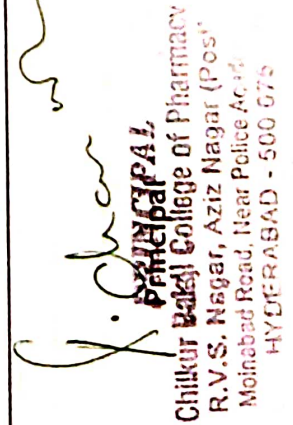 PRINCIPAL
Principal
Chilkur Balaji College of Pharmacy
R.V.S. Nagar, Aziz Nagar (Post
Moinabad Road, Near Police
HYDERABAD - 500 075